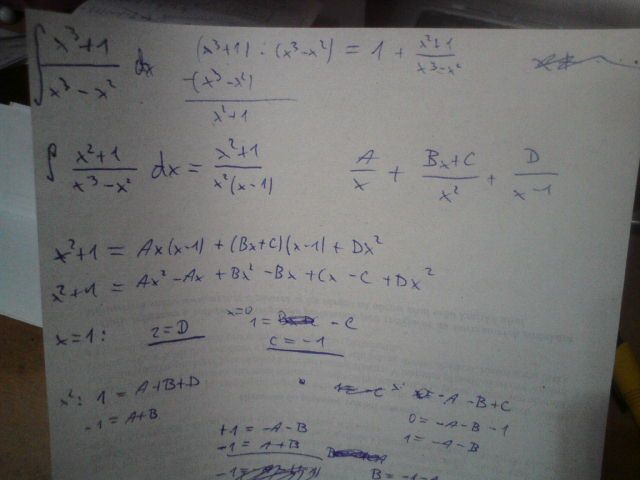 ∫ (x³+1)/(x³−x²) dx   (x³+1) : (x³−x²) = 1 + (x²+1)/(x³−x²)
−(x³−x²)
x²+1
∫ (x²+1)/(x³−x²) dx = (x²+1)/(x²(x−1))   A/x + (Bx+C)/x² + D/(x−1)
x²+1 = Ax(x−1) + (Bx+C)(x−1) + Dx²
x²+1 = Ax²−Ax + Bx²−Bx + Cx −C + Dx²
x=1: 2=D   x=0 1= −C
C=−1
x²: 1 = A+B+D   x: 0= −A −B+C
−1 = A+B   0= −A−B−1
+1 = −A−B   1= −A−B
−1 = A+B
B=−1−